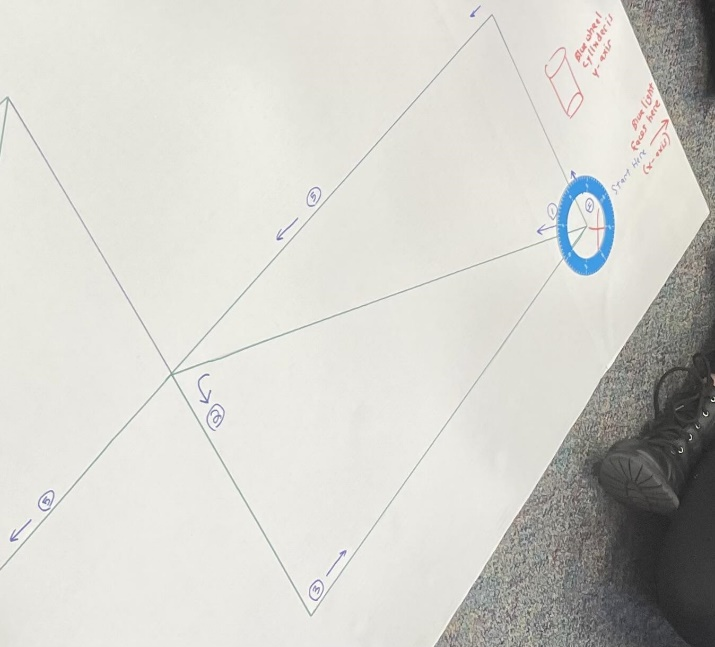 Blue wheel
cylinder is
y-axis
Blue light
faces here
(x-axis)
Start Here
1
4
5
2
3
5